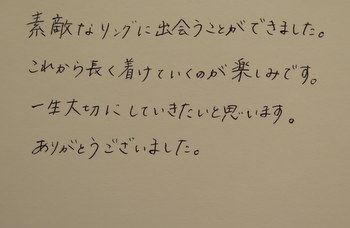 素敵なリングに出会うことができました。
これから長く着けていくのが楽しみです。
一生大切にしていきたいと思います。
ありがとうございました。